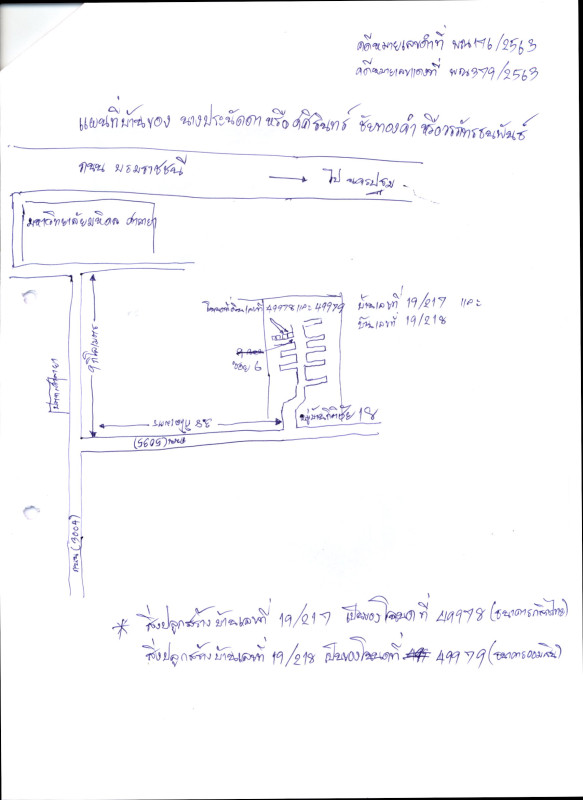 คดีหมายเลขดำที่ พณ176/2563
คดีหมายเลขแดงที่ พณ379/2563
แผนที่บ้านของ นางประนัดดา หรือ ศศิรินทร์ ชัยทองคำ หรือวรภัทรธนพันธ์
ถนน บรมราชชนนี
ไป นครปฐม
มหาวิทยาลัยมหิดล ศาลายา
โฉนดที่ดินเลขที่ 49978 และ 49979
บ้านเลขที่ 19/217 และ
บ้านเลขที่ 19/218
ซอย 6
9 กิโลเมตร
38 กิโลเมตร
หมู่บ้านกิตติชัย 18
ถนน(5095)
ถนน(3004)
* สิ่งปลูกสร้าง บ้านเลขที่ 19/217 เป็นของโฉนดที่ 49978 (ธนาคารกสิกรไทย)
สิ่งปลูกสร้าง บ้านเลขที่ 19/218 เป็นของโฉนดที่ 49979 (ธนาคารออมสิน)